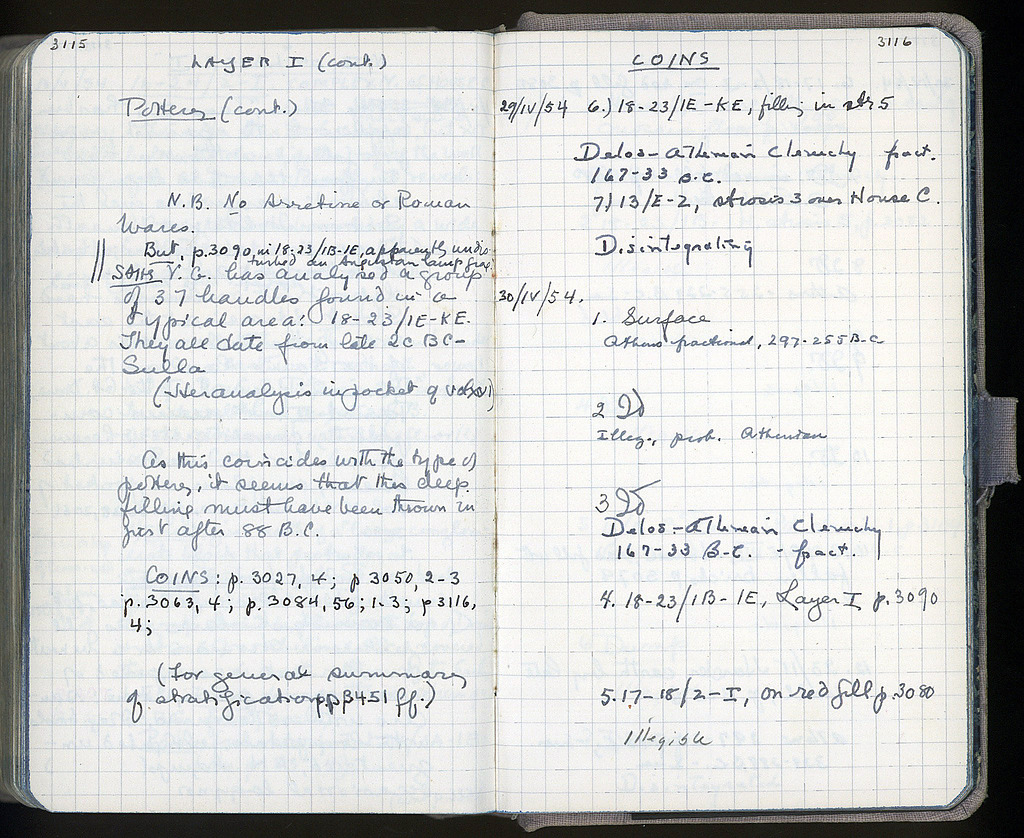 3115
LAYER I (cont.)
Pottery (cont.)
N.B. No Arretine or Roman
Wares.
But, p.3090, in 18-23/1B-1E, apparently undis-
turbed an Augustan lamp frag.
SAHs V.G. has analysed a group
of 37 handles found in a
typical area: 18-23/1E-KE.
They all date from late 2c BC-
Sulla
(Her analysis in pocket of vol
As this coincides with the type of
pottery, it seems that this deep
filling must have been thrown in
just after 88 B.C.
COINS: p. 3027, 4; p 3050, 2-3
p. 3063, 4; p. 3084, 56; 1-3; p 3116,
4;
(For general summary
of stratification pp 3451 ff.)
3116
COINS
29/IV/54 6.) 18-23/1E-KE, filling in str 5
Delos-Athenian Cleruchy fract.
167-33 B.C.
7) 13/E-2, strosis 3 over House C.
Disintegrating
30/IV/54.
1. Surface
Athens fractional, 297-255 B-C
2 Do
Illeg., prob. Athenian
3 Do
Delos-Athenian Cleruchy
167-33 B.C. - fract.
4. 18-23/1B-1E, Layer I p.3090
5. 17-18/2-I, on red fill p.3080
Illegible